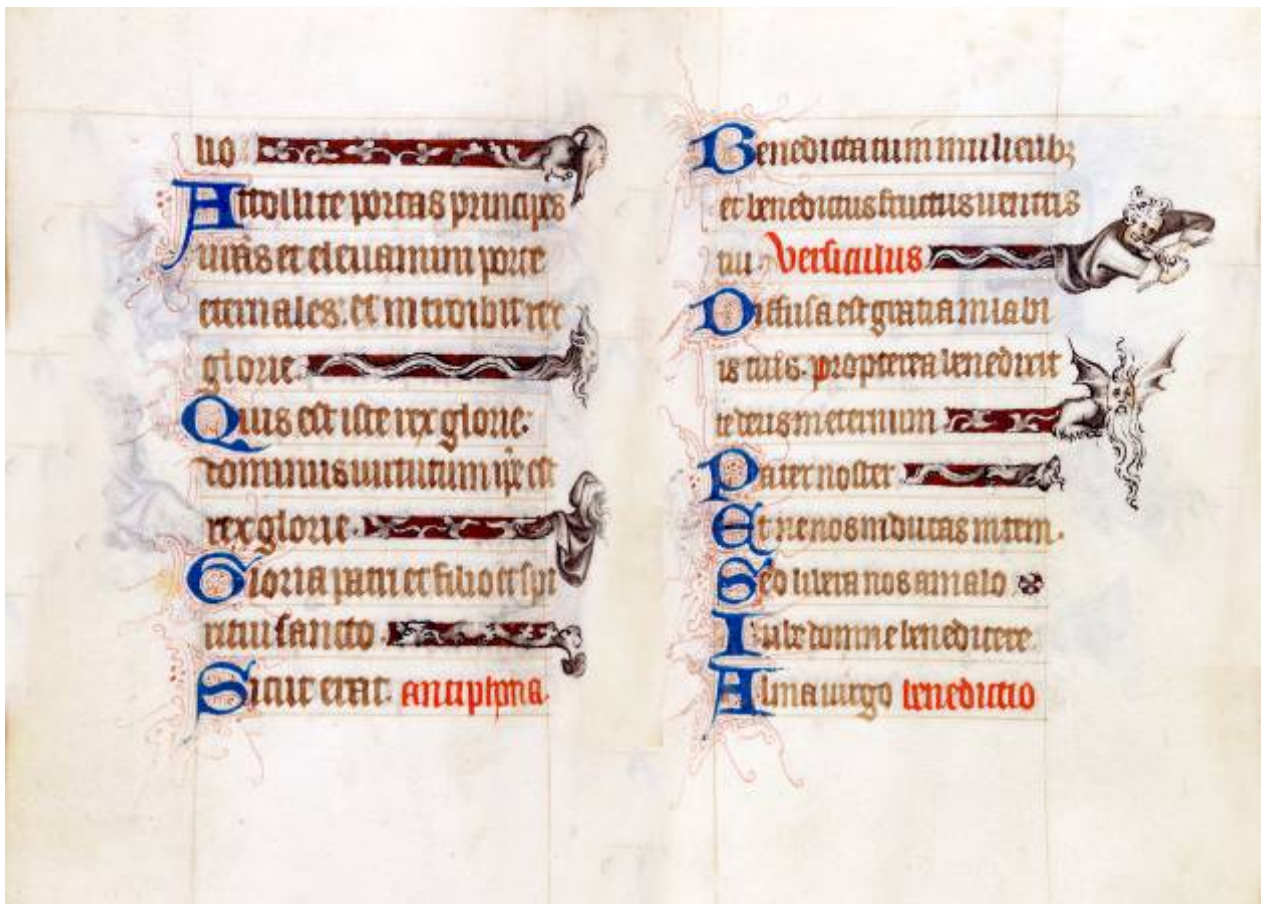 uo
Attollite portas principes
uras et eleuamini porte
eternales: et introibit rex
glorie.
Quis est iste rex glorie:
dominus uirtutum ipe est
rex glorie
Gloria patri et filio et spi
ritui sancto
Sicut erat. antiphona.
Benedicta tu in mulieribꝫ
et benedictus fructus uentris
tui. Versiculus
Diffusa est gratia in labi
is tuis. propterea benedixit
te deus in eternum
Pater noster
Et ne nos inducas in tem.
Sed libera nos a malo
Iube domne benedicere.
Alma uirgo benedictio